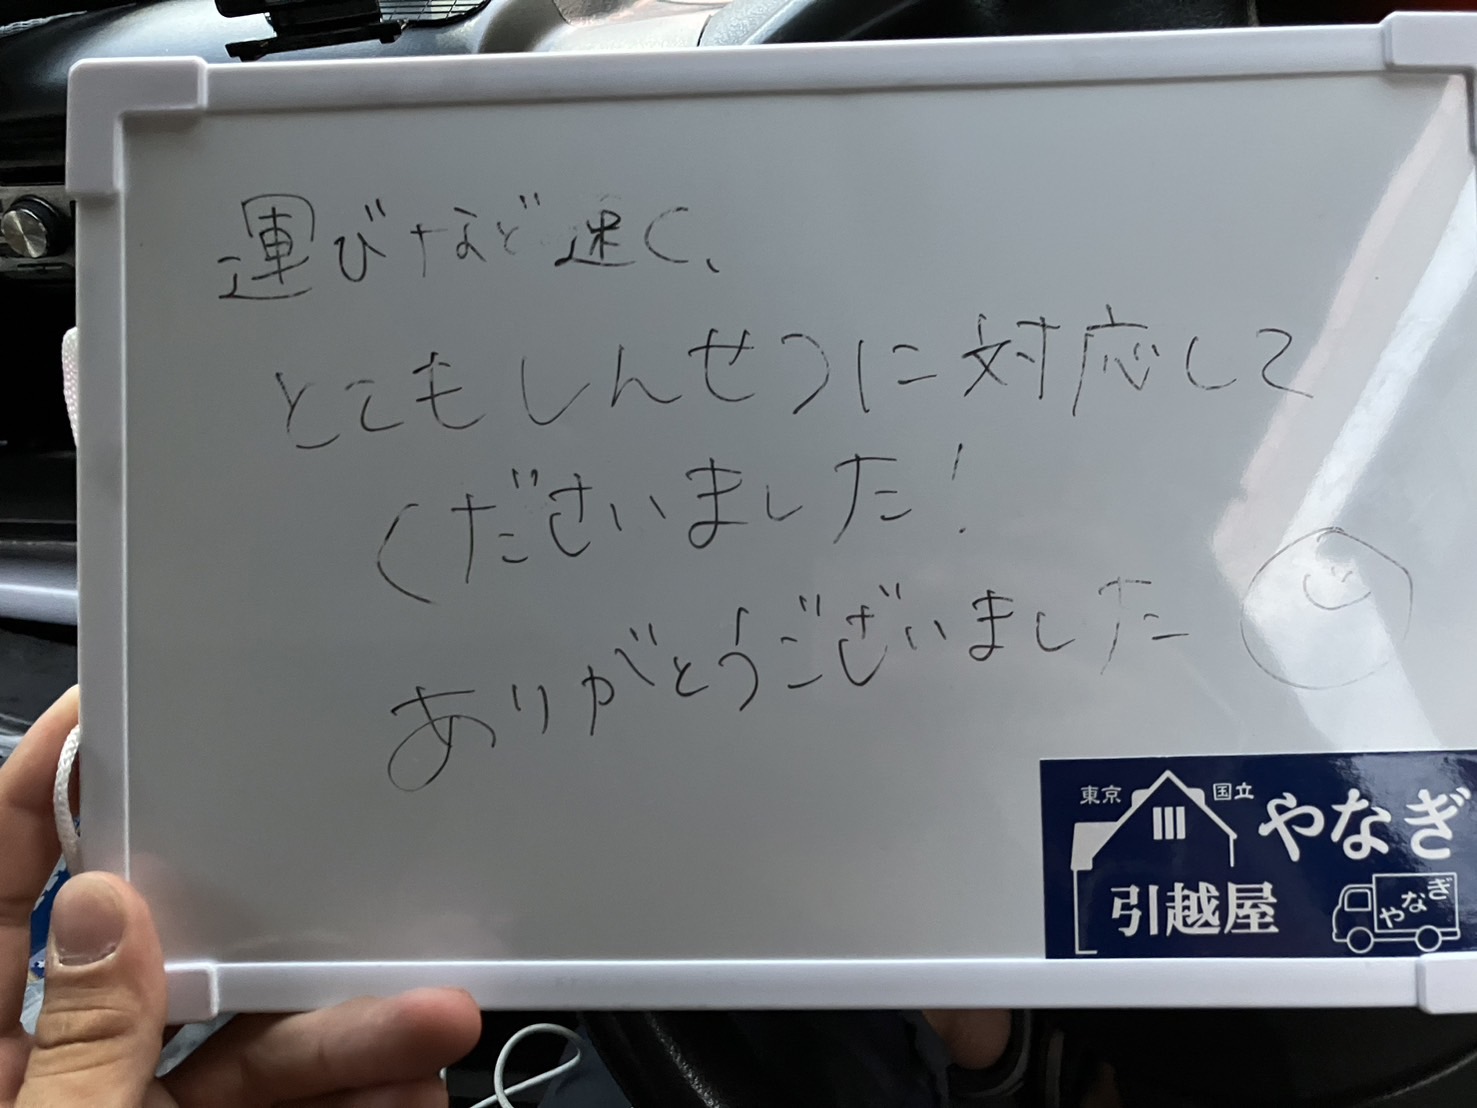 運びなど速く、
とてもしんせつに対応して
くださいました!
ありがとうございました
東京 国立 やなぎ
引越屋
やなぎ